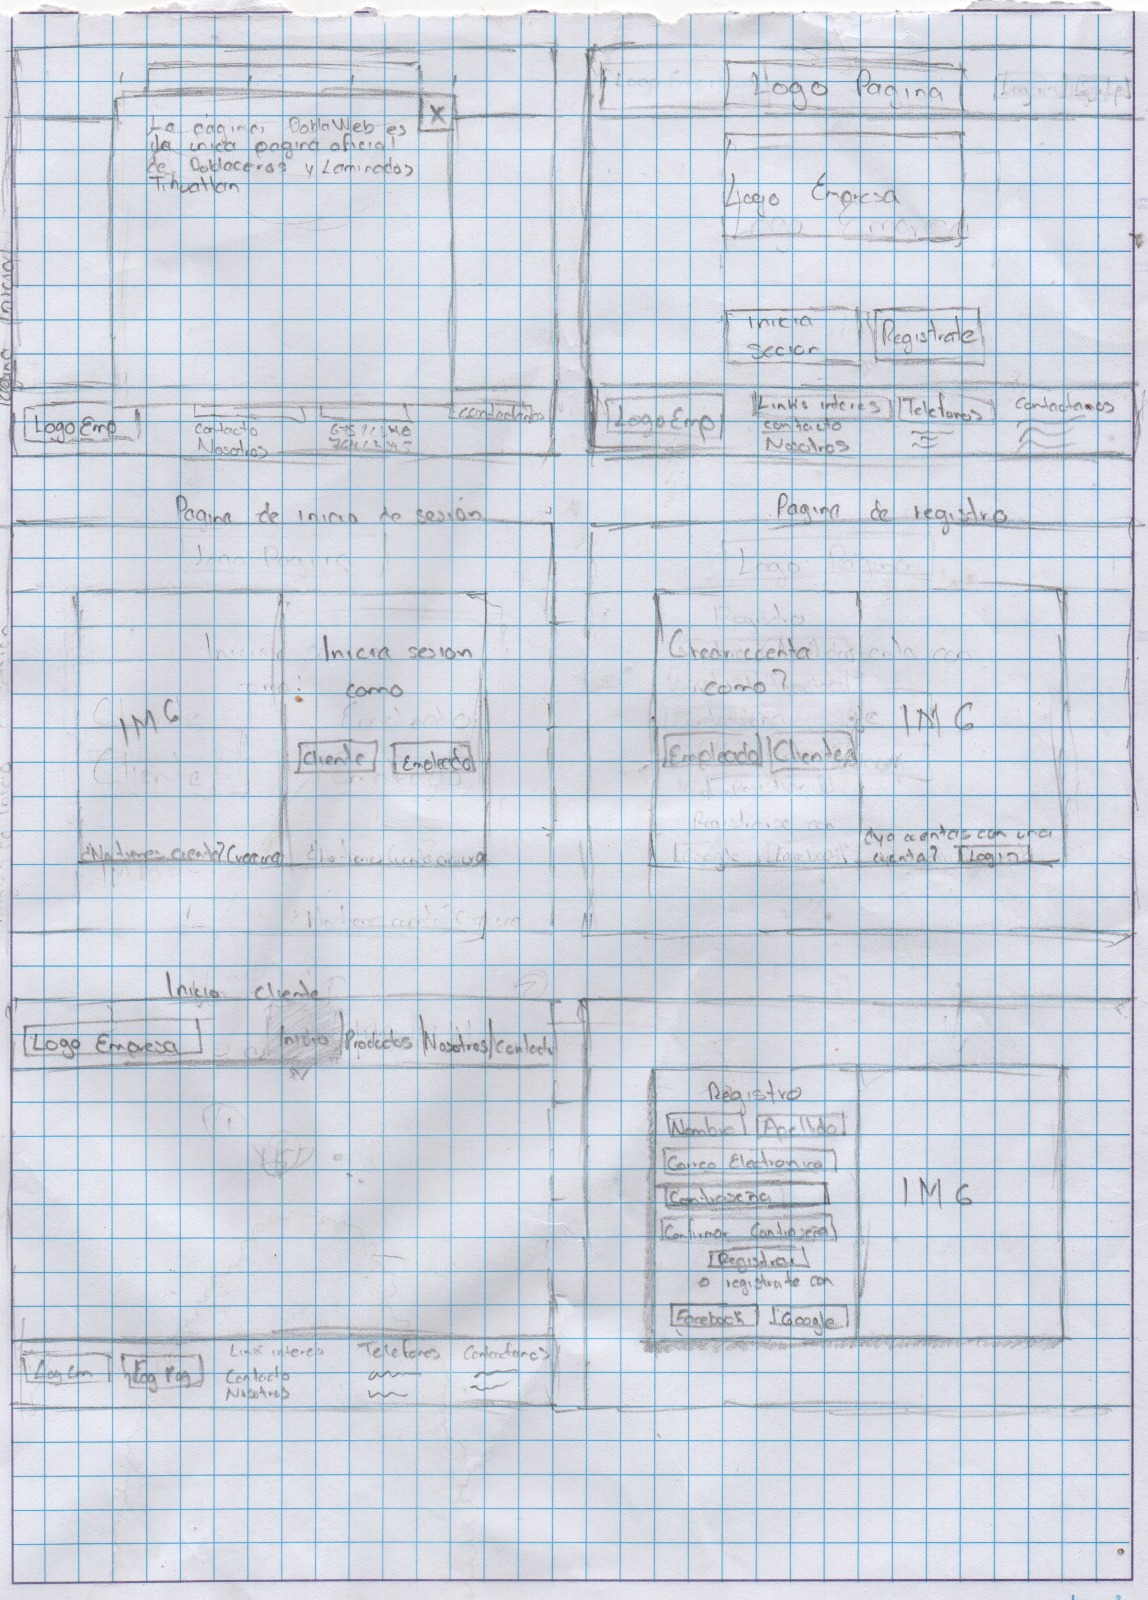 La pagina DoblaWeb es
la unica pagina oficial
de Doblaceros y Laminados
Tihuatlan
X
Logo Emp
Contacto
Nosotros
Contactados
Logo Pagina
Logo Empresa
Inicia
secion
Registrate
Logo Emp
Links interes
contacto
Nosotros
Telefonos
Contactanos
Pagina de inicio de sesión
IMG
Inicia sesion
como
Cliente
Empleado
¿No tienes cuenta? Crea una
Pagina de registro
Logo Pagina
Crear cuenta
como?
Empleado
Cliente
IMG
cuenta? Login
Inicio Cliente
Logo Empresa
Inicio
Productos
Nosotros
Contacto
Log Em
Log Pag
Link interes
Contacto
Nosotros
Telefonos
Contactanos
Registro
Nombre
Apellido
Correo Electronico
Contraseña
Confirmar Contraseña
Registrar
o registrate con
Facebook
Google
IMG